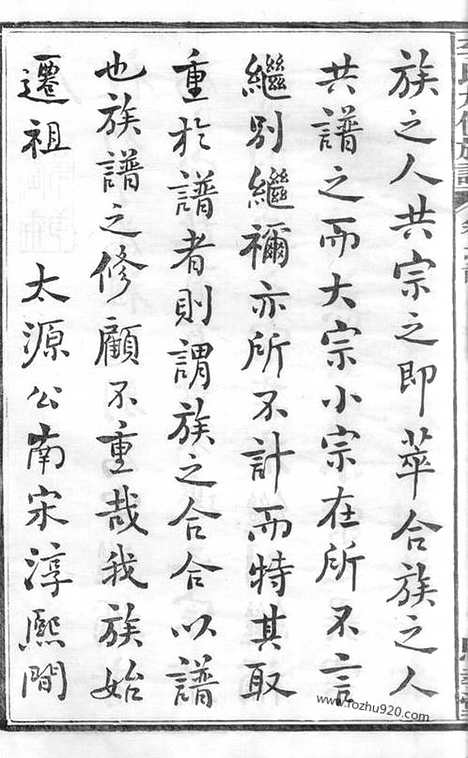 族之人共宗之即萃合族之人
共譜之而大宗小宗在所不言
繼别繼禰亦所不計而特其取
重於譜者則謂族之合合以譜
也族譜之修顧不重哉我族始
遷祖 太源公南宋淳熈間
www.rozhu920.com